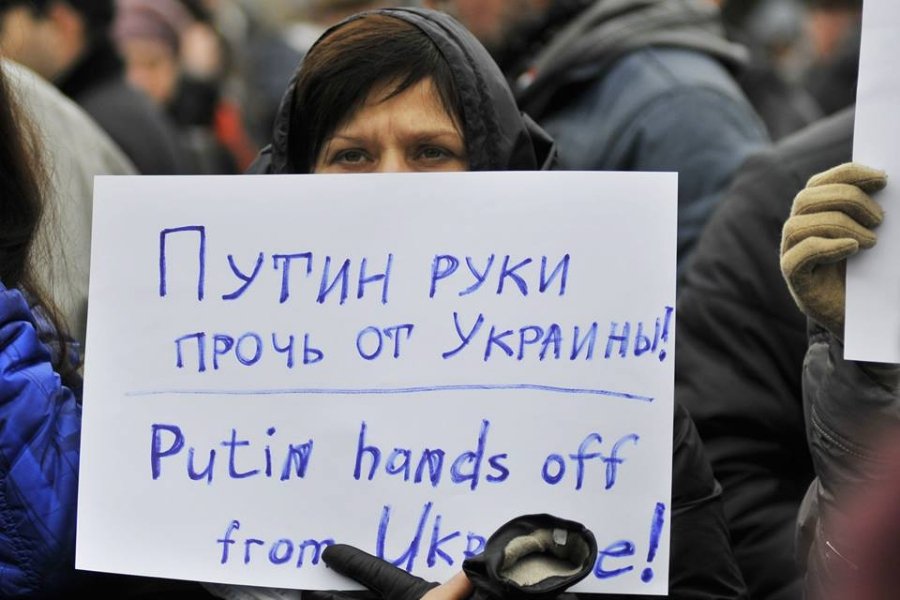 Путин руки
прочь от Украины!
Putin hands off
from Uk e!